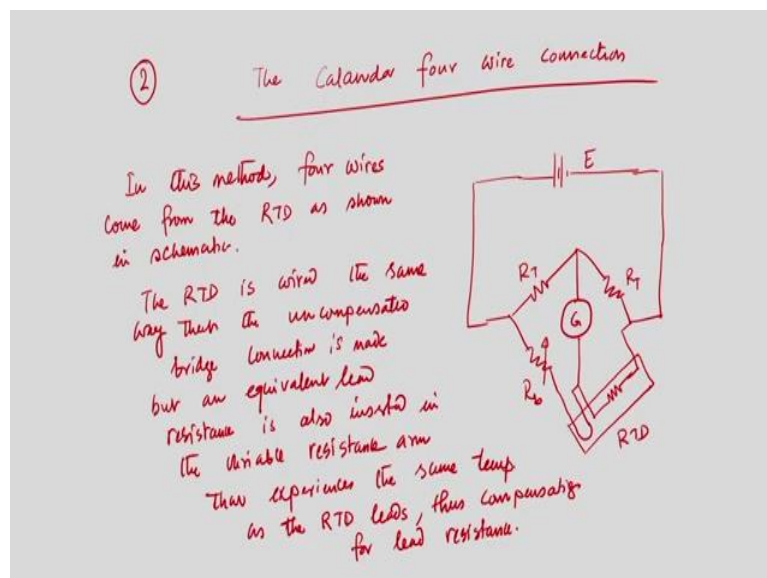 2
The Calandar four wire connection
In this method, four wires
come from the RTD as shown
in schematic.
The RTD is wired the same
way that the uncompensated
bridge connection is made
but an equivalent lead
resistance is also inserted in
the variable resistance arm
that experiences the same temp
as the RTD leads, thus compensating
for lead resistance.
E
R1 R1
G
Rb
RTD